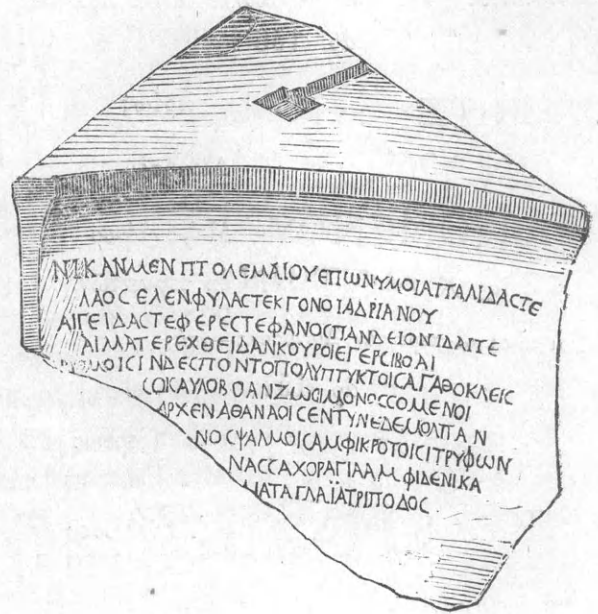 ΝΙΚΑΝΜΕΝ ΠΤΟΛΕΜΑΙΟΥΕΠΩΝΥΜΟΙΑΤΤΑΛΙΔΑϹΤΕ
ΛΑΟϹ ΕΛΕΝΦΥΛΑϹΤΕΚΓΟΝΟΙΑΔΡΙΑΝΟΥ
ΑΙΓΕΙΔΑϹΤΕΦΕΡΕϹΤΕΦΑΝΟϹΠΑΝΔΕΙΟΝΙΔΑΙΤΕ
ΑΙΜΑΤΕΡΕΧΘΕΙΔΑΝΚΟΥΡΟΙΕΓΕΡϹΙΒΟΑΙ
ΘΜΟΙϹΙΝΔΕϹΠΟΝΤΟΠΟΛΥΠΤΥΚΤΟΙϹΑΓΑΘΟΚΛΕΙϹ
ϹΩΚΑΥΛΟΒΟΑΝΖΩϹΙΜΟΝΟϹϹΟΜΕΝΟΙ
ΑΡΧΕΝΑΘΑΝΑΟΙϹΕΝΤΥΝΕΔΕΜΟΛΠΑΝ
ΝΟϹΨΑΛΜΟΙϹΑΜΦΙΚΡΟΤΟΙϹΙΤΡΥΦΩΝ
ΝΑϹϹΑΧΟΡΑΓΙΑΑΜΦΙΔΕΝΙΚΑ
ΜΑΤΑΓΛΑΪΑΤΡΙΠΟΔΟϹ